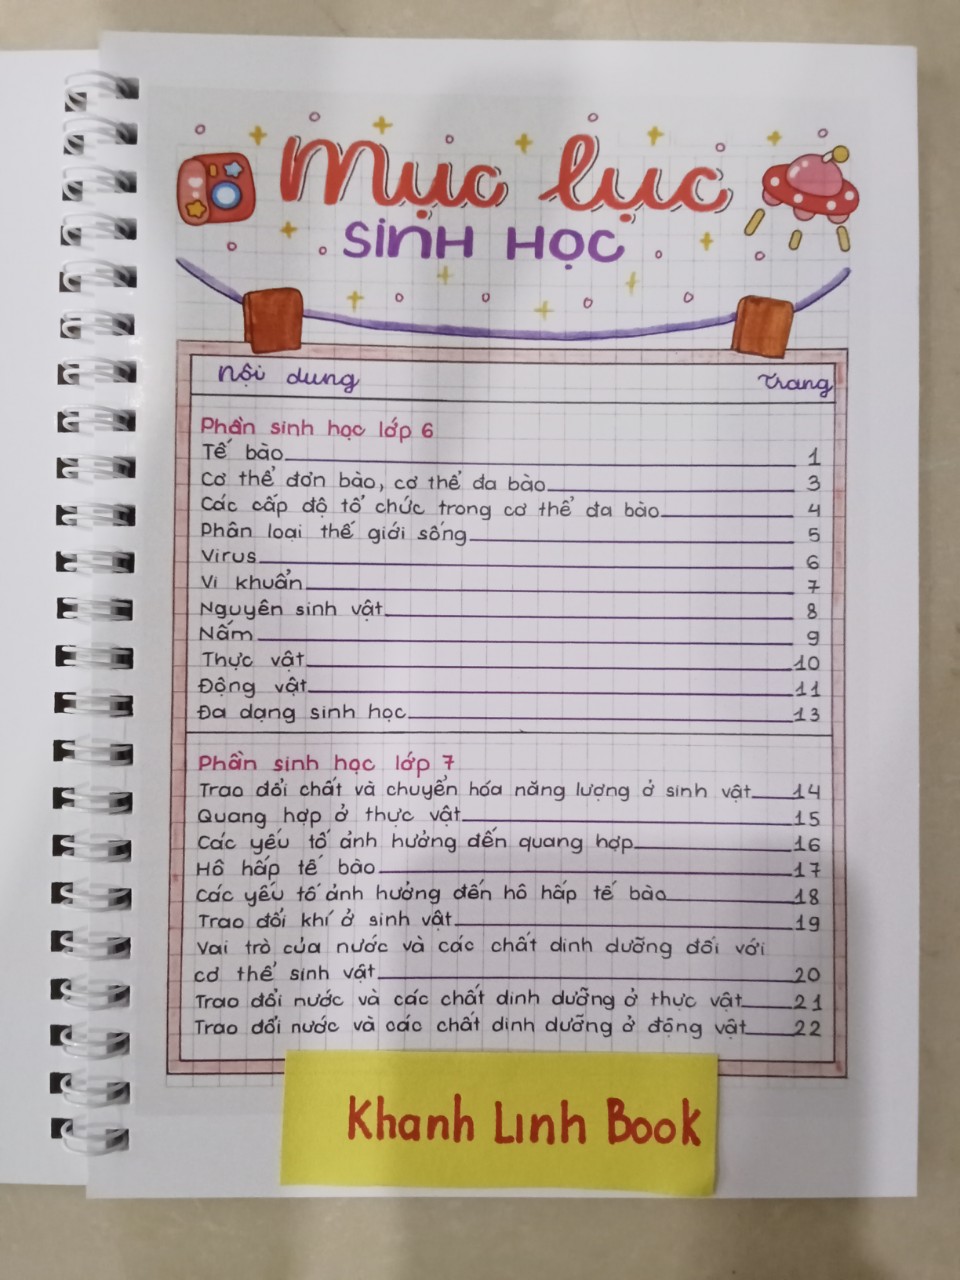 Mục lục
SINH HỌC
Nội dung Trang
Phần sinh học lớp 6
Tế bào 1
Cơ thể đơn bào, cơ thể đa bào 3
Các cấp độ tổ chức trong cơ thể đa bào 4
Phân loại thế giới sống 5
Virus 6
Vi khuẩn 7
Nguyên sinh vật 8
Nấm 9
Thực vật 10
Động vật 11
Đa dạng sinh học 13
Phần sinh học lớp 7
Trao đổi chất và chuyển hóa năng lượng ở sinh vật 14
Quang hợp ở thực vật 15
Các yếu tố ảnh hưởng đến quang hợp 16
Hô hấp tế bào 17
Các yếu tố ảnh hưởng đến hô hấp tế bào 18
Trao đổi khí ở sinh vật 19
Vai trò của nước và các chất dinh dưỡng đối với
cơ thể sinh vật 20
Trao đổi nước và các chất dinh dưỡng ở thực vật 21
Trao đổi nước và các chất dinh dưỡng ở động vật 22
Khanh Linh Book